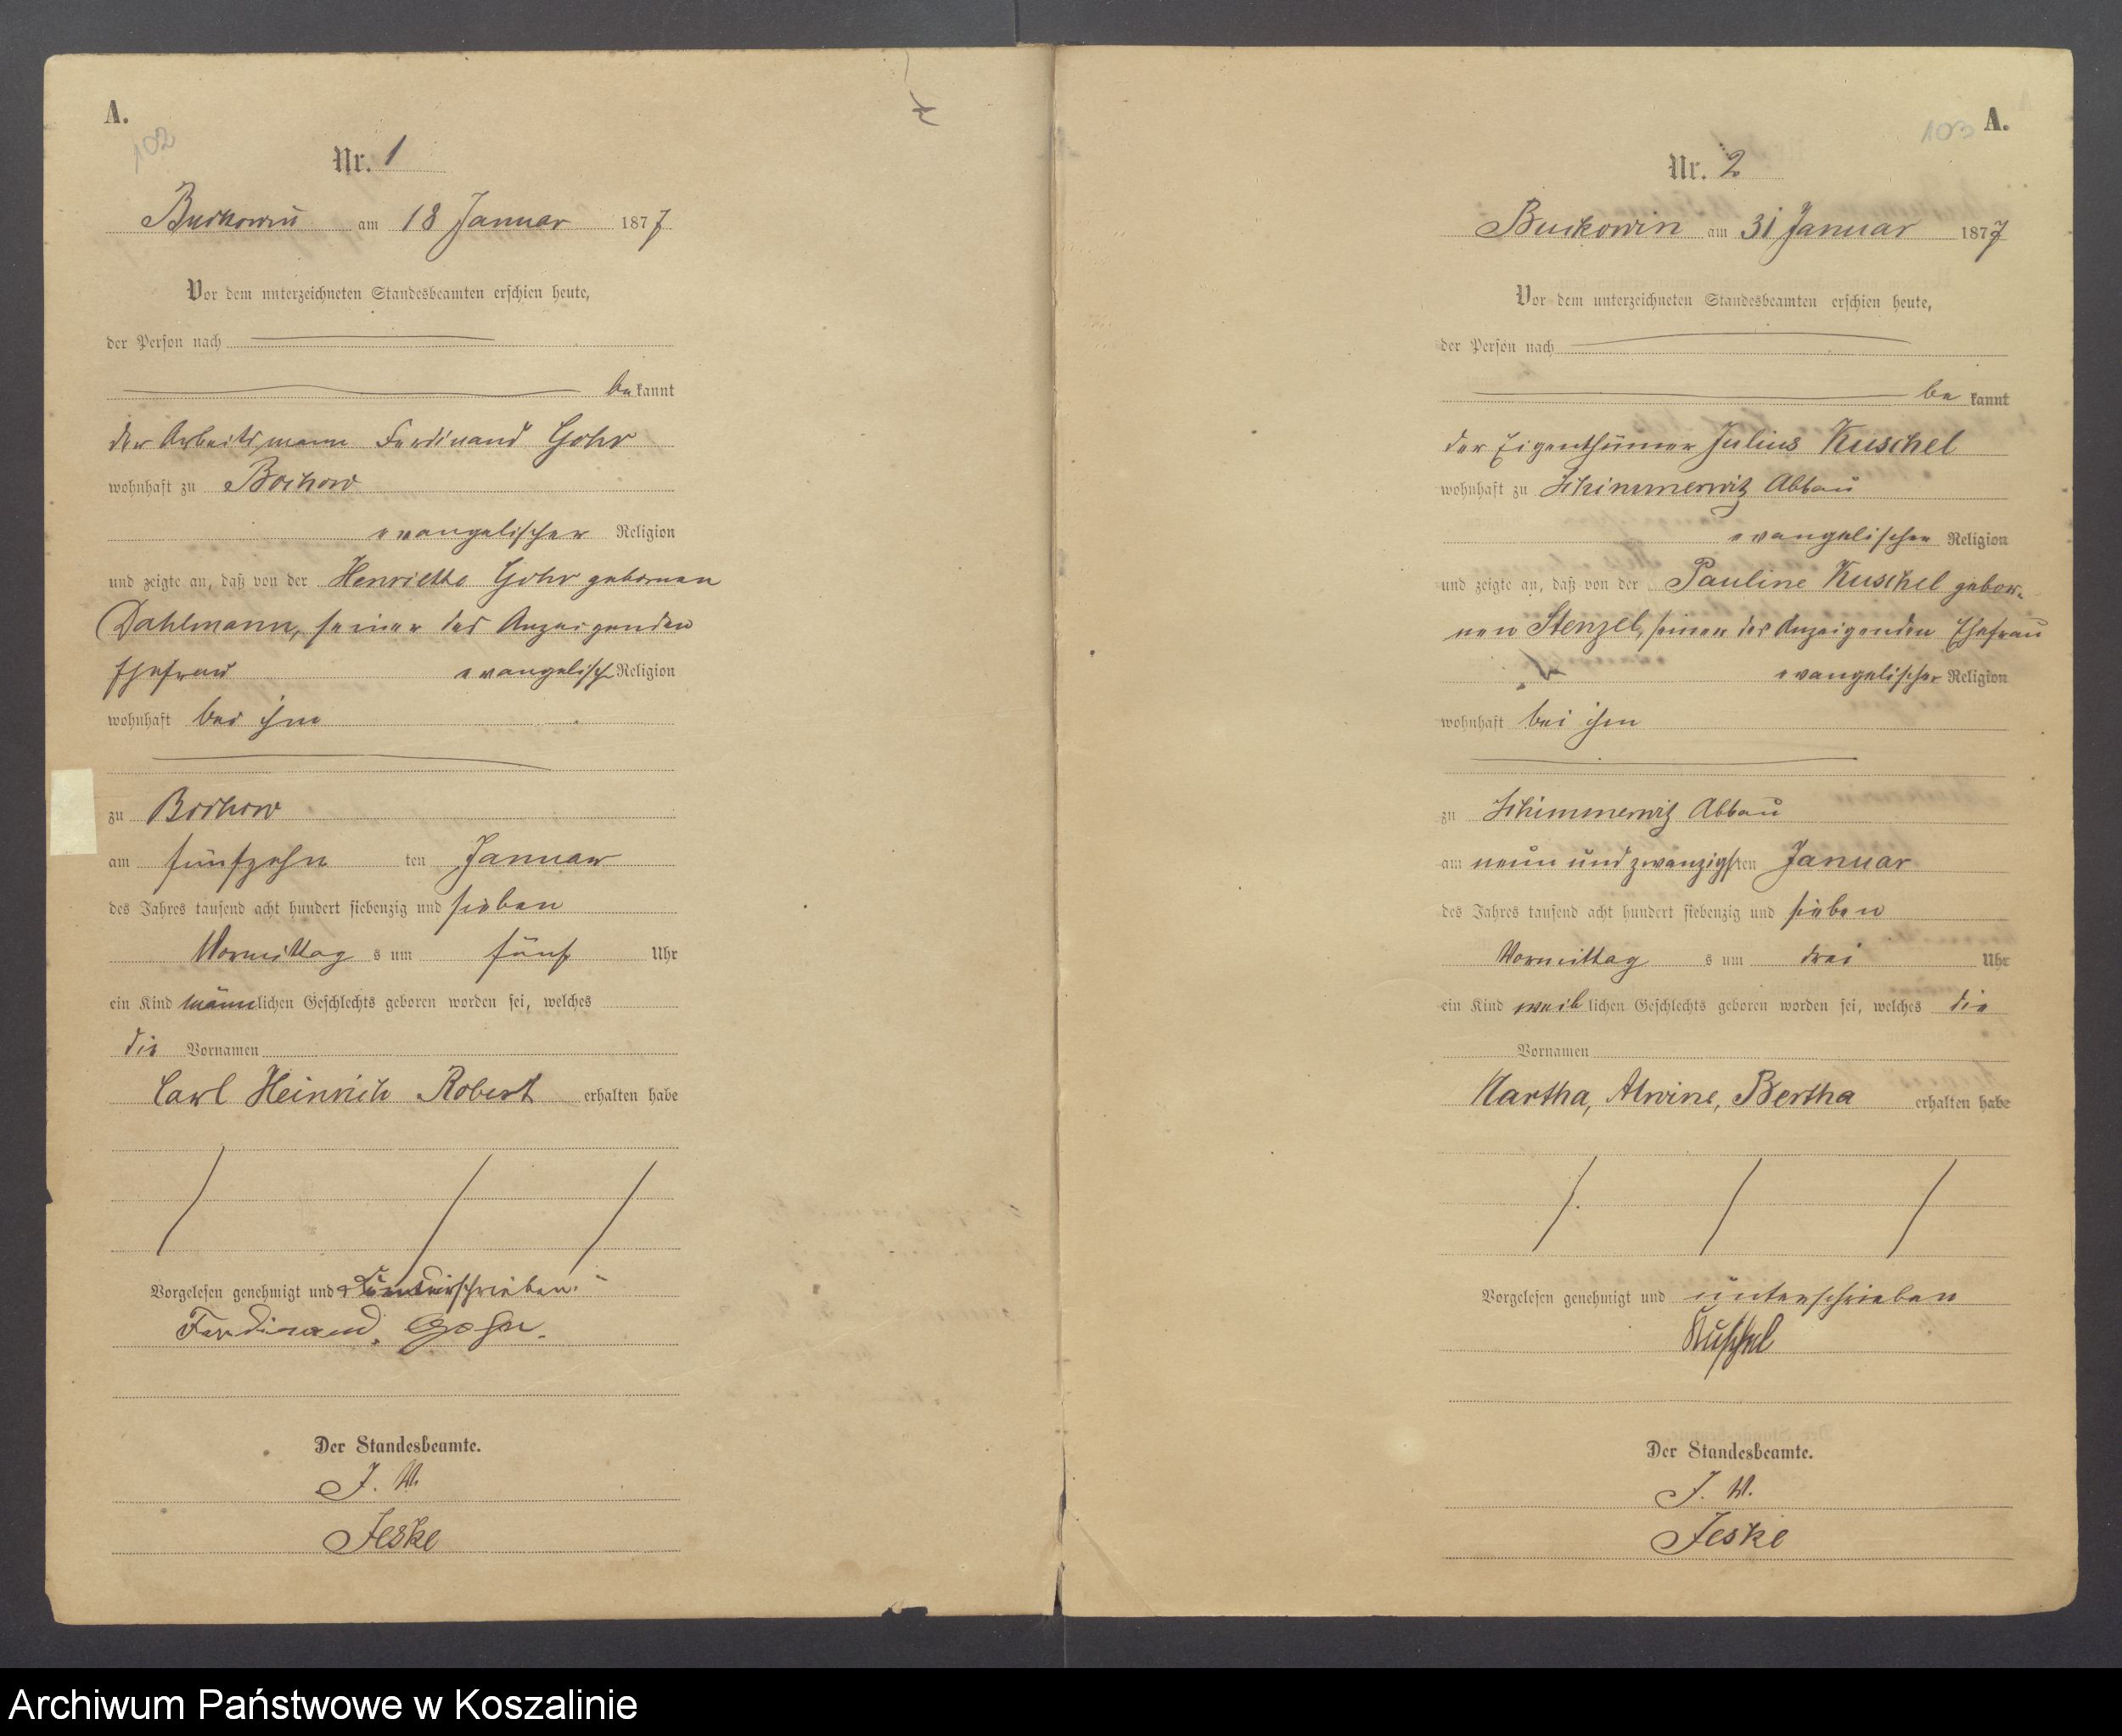 A.
102
Nr. 1
Buckowin am 18 Januar 1877
Vor dem unterzeichneten Standesbeamten erschien heute,
der Person nach
be kannt
der Arbeitsmann Ferdinand Gohr
wohnhaft zu Bochow
evangelischer Religion
und zeigte an, daß von der Henriette Gohr gebornen
Dahlmann, seiner des Anzeigenden
Ehefrau evangelisch Religion
wohnhaft bei ihm
zu Bochow
am fünfzehn ten Januar
des Jahres tausend acht hundert siebenzig und sieben
Vormittag s um fünf Uhr
ein Kind männlichen Geschlechts geboren worden sei, welches
die Vornamen
Carl Heinrich Robert erhalten habe
Vorgelesen genehmigt und unterschrieben.
Ferdinand Gohr.
Der Standesbeamte.
J. V.
Jeske
103 A.
Nr. 2
Buckowin am 31 Januar 1877
Vor dem unterzeichneten Standesbeamten erschien heute,
der Person nach
be kannt
der Eigenthümer Julius Kuschel
wohnhaft zu Schimmerwitz Abbau
evangelischer Religion
und zeigte an, daß von der Pauline Kuschel gebor-
nen Stenzel, seiner des Anzeigenden Ehefrau
evangelischer Religion
wohnhaft bei ihm
zu Schimmerwitz Abbau
am neun und zwanzigsten Januar
des Jahres tausend acht hundert siebenzig und sieben
Vormittag s um drei Uhr
ein Kind weib lichen Geschlechts geboren worden sei, welches die
Vornamen
Martha, Alwine, Bertha erhalten habe
Vorgelesen genehmigt und unterschrieben
Kuschel
Der Standesbeamte.
J. V.
Jeske
Archiwum Państwowe w Koszalinie